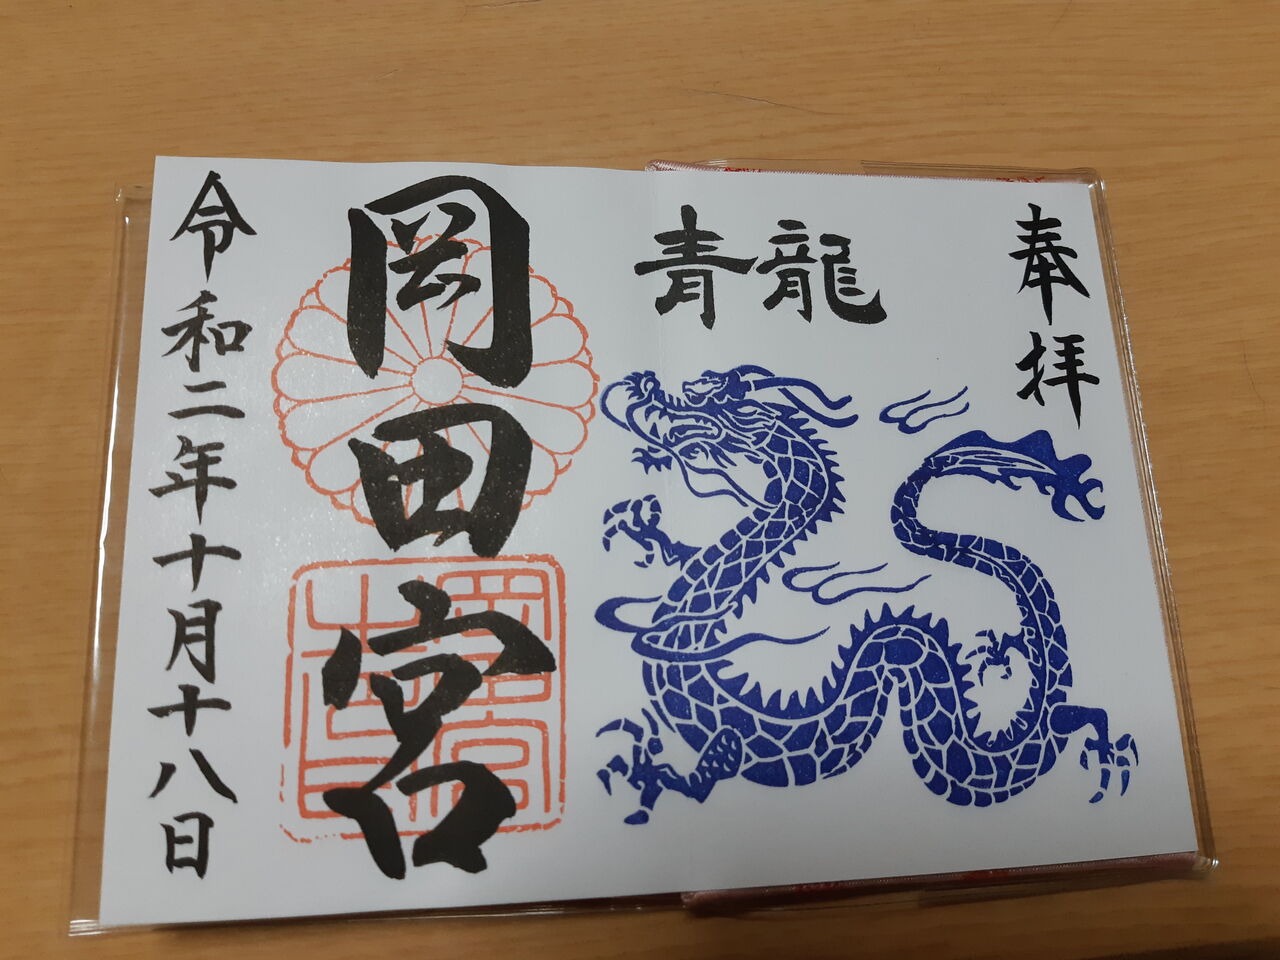 奉拝
青龍
岡田宮
令和二年十月十八日